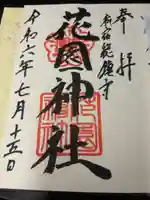 奉拝
新宿総鎮守
花園神社
令和六年七月十五日